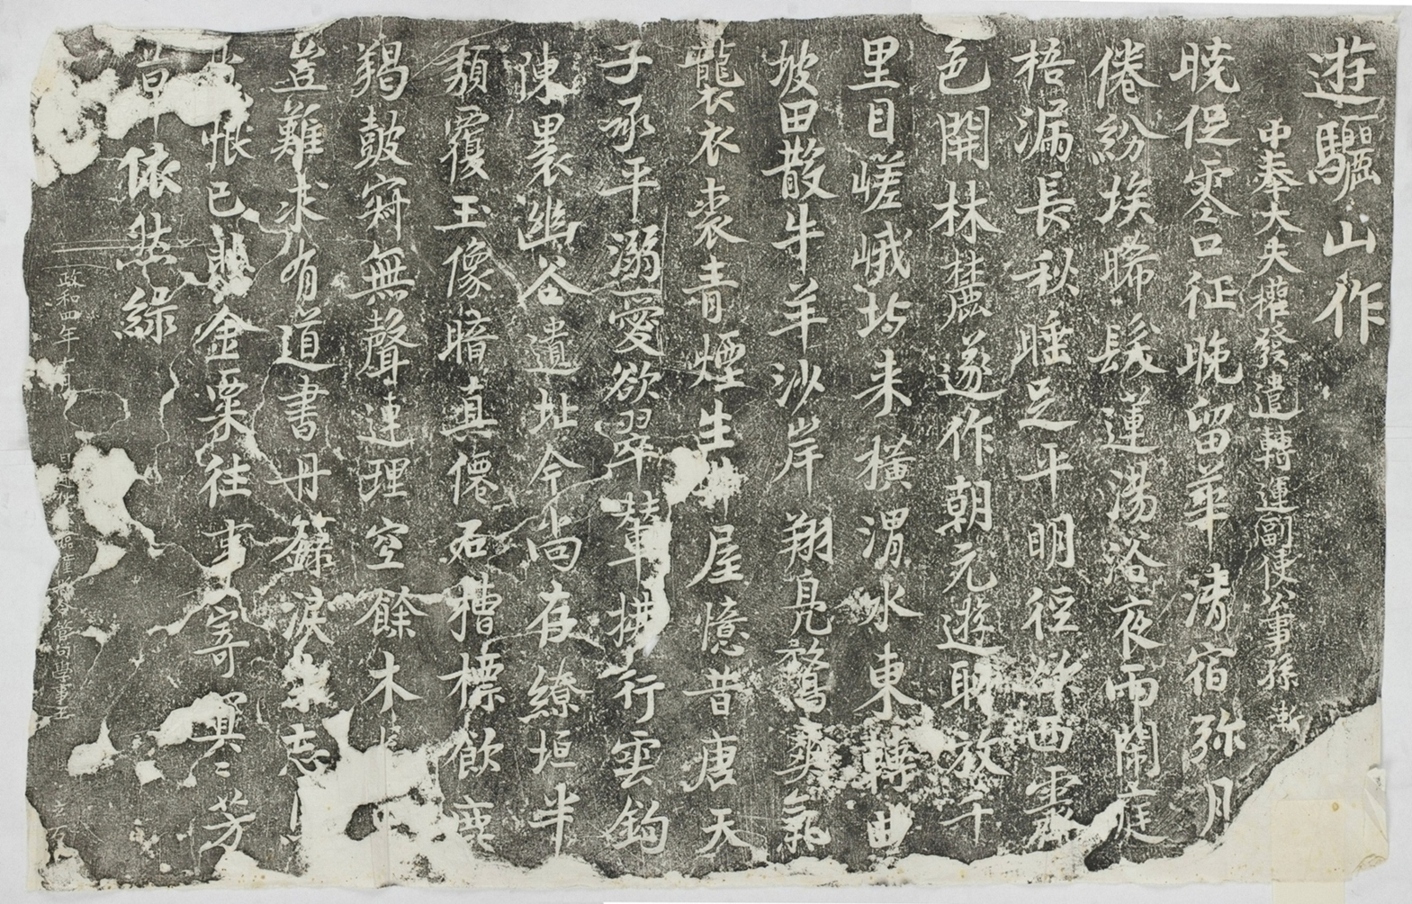 遊驪山作
中奉大夫權發遣轉運副使公事孫漸
曉促零口征晚留華清宿弥月
倦紛埃晞髮蓮湯浴夜雨鬧庭
梧漏長秋睡足平明徑西
色開林麓遂作朝元遊取放千
里目嵯峨北未橫渭水東轉曲
坡田散牛羊沙岸翔鳧鶩爽氣
襲衣裘青煙生屋憶昔唐天
子承平溺愛欲翠輦拱行雲鈎
陳畏幽谷遺址今尚存繚垣半
頹覆玉像暗真僊石槽標飲鹿
羯鼓寂無聲連理空餘木
豈難求有道書丹籙淚志
悵已金粟往事寄興芳
草依然綠
政和四年 月